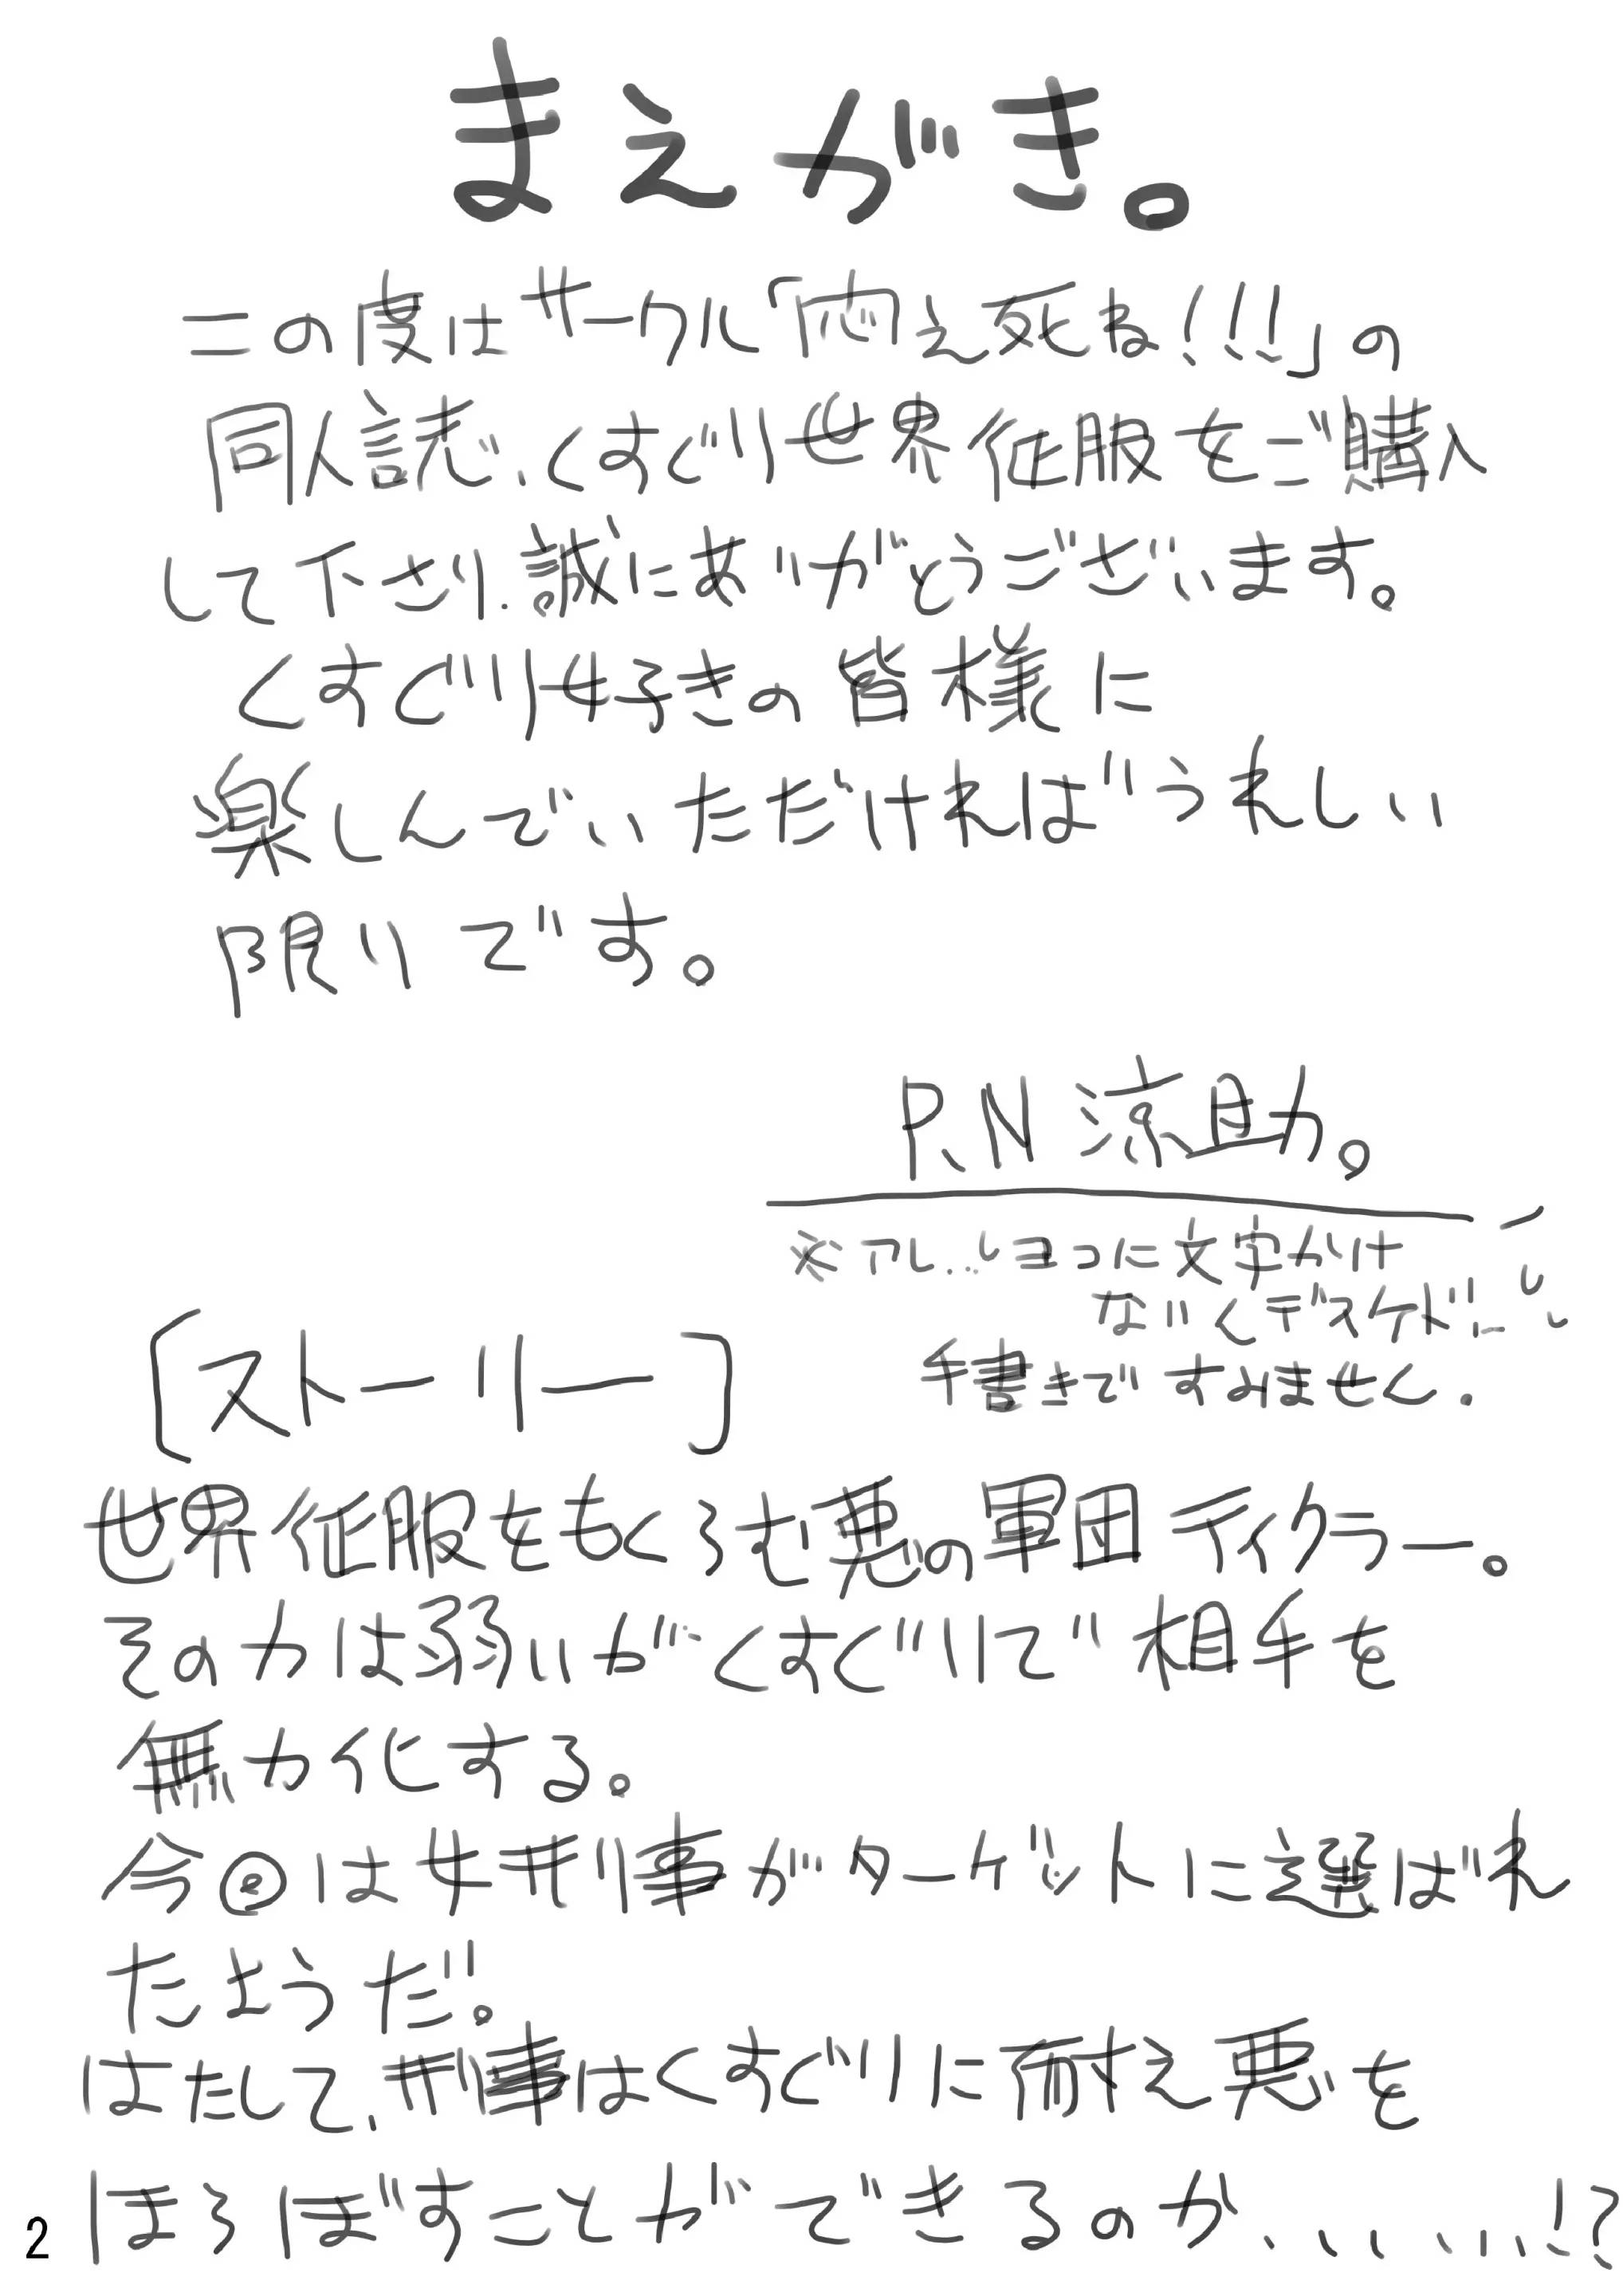 まえがき。
この度はサークル「悶え死ね!!!」の
同人誌、くすぐり世界征服をご購入
して下さり、誠にありがとうございます。
くすぐり好きの皆様に
楽しんでいただければうれしい
限りです。
P.N 涼助。
※フォトショに文字が
ないんデスケド…
手書きですみません.
〔ストーリー〕
世界征服をもくろむ悪の軍団ティクラー。
その力は弱いがくすぐりで相手を
無力化する。
今回は女刑事がターゲットに選ばれ
たようだ。
はたして、刑事はくすぐりに耐え悪を
ほろぼすことができるのか、、、、、、!?
2